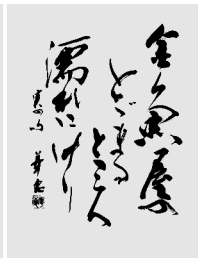 金魚屋の
とどまる
ところ
濡れにけり